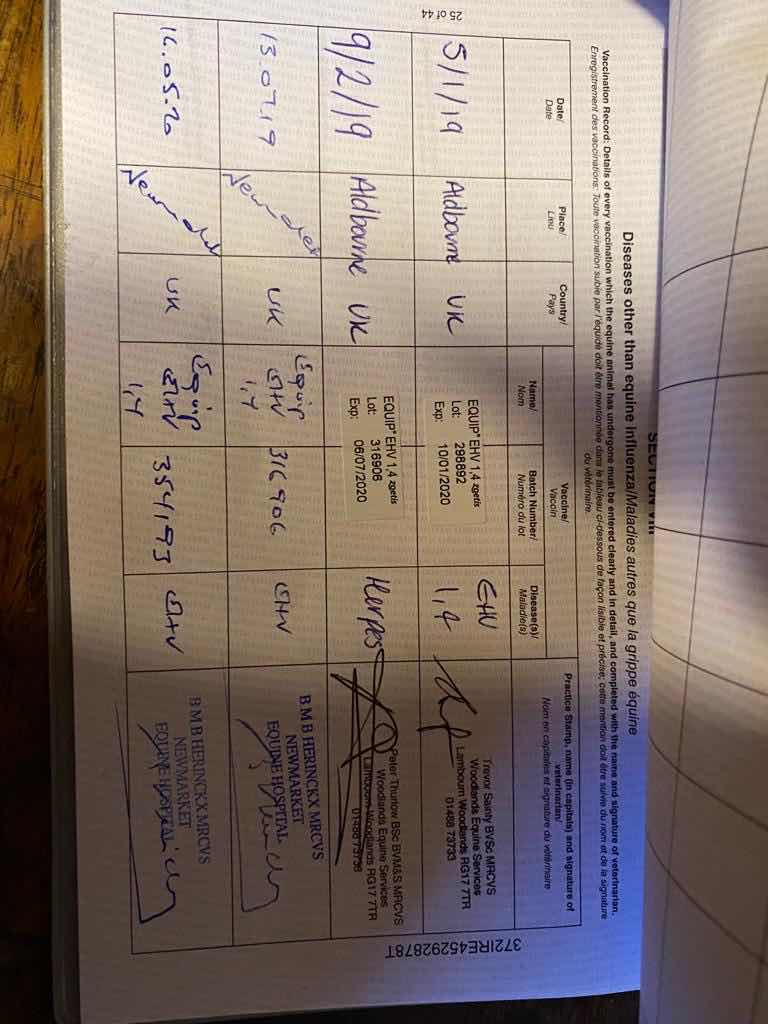 SECTION VIII
Diseases other than equine influenza/Maladies autres que la grippe équine
Vaccination Record: Details of every vaccination which the equine animal has undergone must be entered clearly and in detail, and completed with the name and signature of veterinarian.
Enregistrement des vaccinations: Toute vaccination subie par l'équidé doit être mentionnée dans le tableau ci-dessous de façon lisible et précise; cette mention doit être suivie du nom et de la signature
du vétérinaire.
Date/
Date
Place/
Lieu
Country/
Pays
Vaccine/
Vaccin
Name/
Nom
Batch Number/
Numéro du lot
Disease(s)/
Maladie(s)
Practice Stamp, name (in capitals) and signature of
veterinarian/
Nom en capitales et signature du vétérinaire
5/1/19 Aldbourne UK
EQUIP® EHV 1,4 zoetis
Lot: 298892
Exp: 10/01/2020
EHV
1,4
Trevor Sainty BVSc MRCVS
Woodlands Equine Services
Lambourn Woodlands RG17 7TR
01488 73733
9/2/19 Aldbourne UK
EQUIP® EHV 1,4 zoetis
Lot: 316906
Exp: 06/07/2020
Herpes
Peter Thurlow BSc BVM&S MRCVS
Woodlands Equine Services
Lambourn Woodlands RG17 7TR
13.07.19 Newmarket UK
Equip
EHV
1,4
316906 EHV
B M B HERINCKX MRCVS
NEWMARKET
EQUINE HOSPITAL
16.05.20 Newmarket UK
Equip
EHV
1,4
354193 EHV
B M B HERINCKX MRCVS
NEWMARKET
EQUINE HOSPITAL
372IRE45292878T
25 of 44